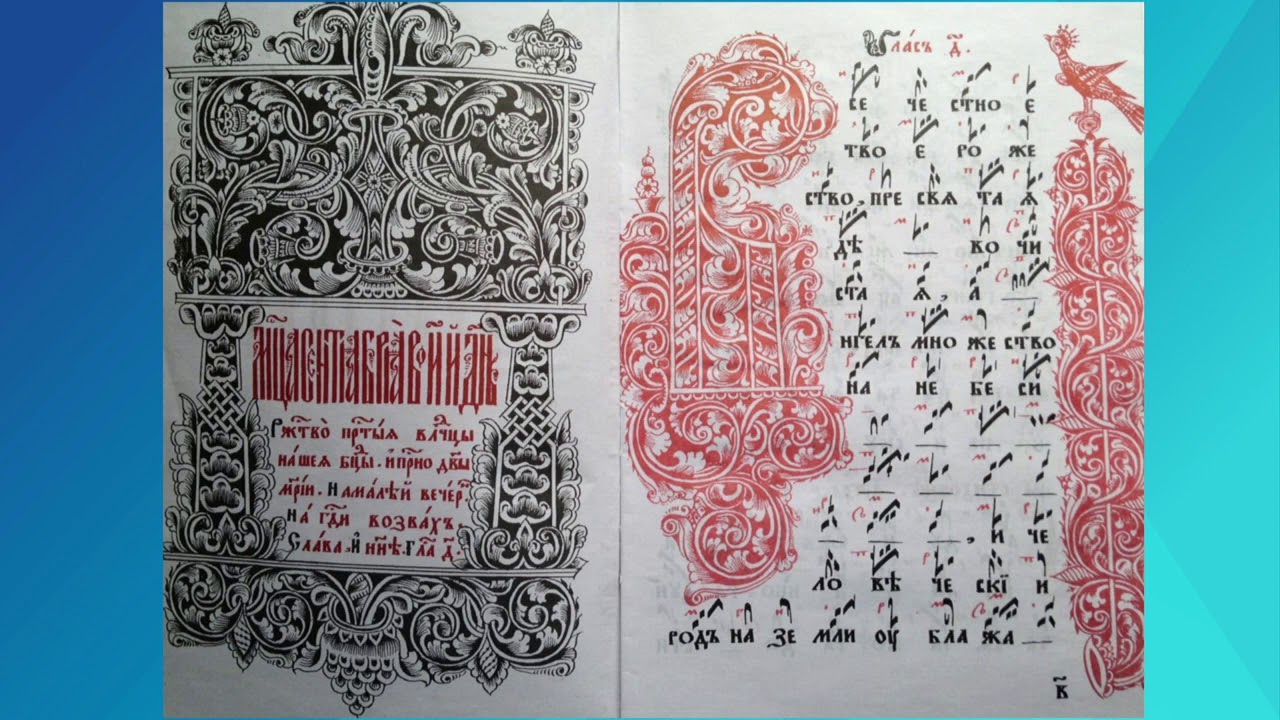 Мц҃а сентѧбрѧ̀ в и҃й дн҃ь
Рж҃тво̀ пр҃тыѧ влⷣчцы
нашеѧ бц҃ы . и҆ пр҃но дв҃ы
мр҃і́и . на ма́лѣй вече́р
на гд҃и возва́хъ.
Слава, и҆ нн҃ѣ. гла д҃.
Гла́съ д҃.
В
се че стно е
тво е ро же
ство, пре свѧ та ѧ
дѣ во чи
ста ѧ, а
нгелъ мно же ство
на не бе си
, и че
ло вѣ че скї и
родъ на зе мли ѹ бла жа
в҃